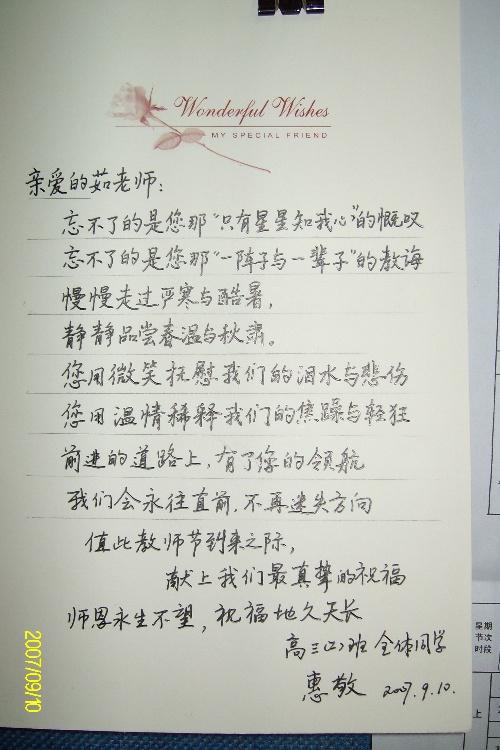 Wonderful Wishes
MY SPECIAL FRIEND
亲爱的茹老师：
忘不了的是您那“只有星星知我心”的慨叹
忘不了的是您那“一阵子与一辈子”的教诲
慢慢走过严寒与酷暑，
静静品尝春温与秋肃。
您用微笑抚慰我们的泪水与悲伤
您用温情稀释我们的焦躁与轻狂
前进的道路上，有了您的领航
我们会永往直前，不再迷失方向
值此教师节到来之际，
献上我们最真挚的祝福
师恩永生不望，祝福地久天长
高三(2)班 全体同学
惠敬 2007.9.10.
2007/09/10
星期
节次
时段
上